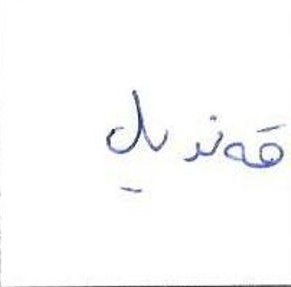 قەندیل